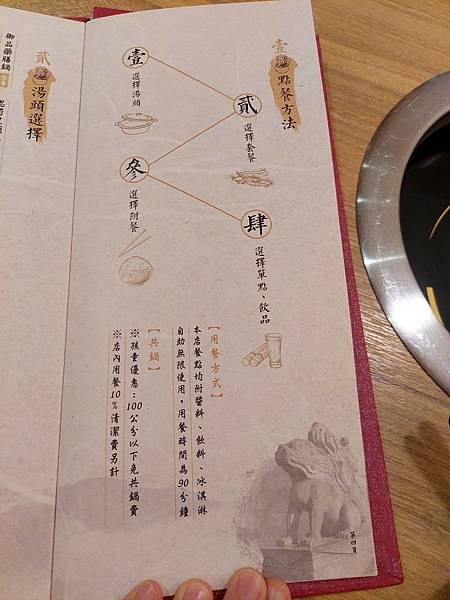 壹 點餐方法
壹
選擇湯頭
貳
選擇套餐
參
選擇附餐
肆
選擇單點、飲品
【用餐方式】
本店餐點均附醬料、飲料、冰淇淋
自助無限使用，用餐時間為90分鐘
【共鍋】
※孩童優惠：100公分以下免共鍋費
※店內用餐10%清潔費另計
第四頁
貳 湯頭選擇
御品藥膳鍋